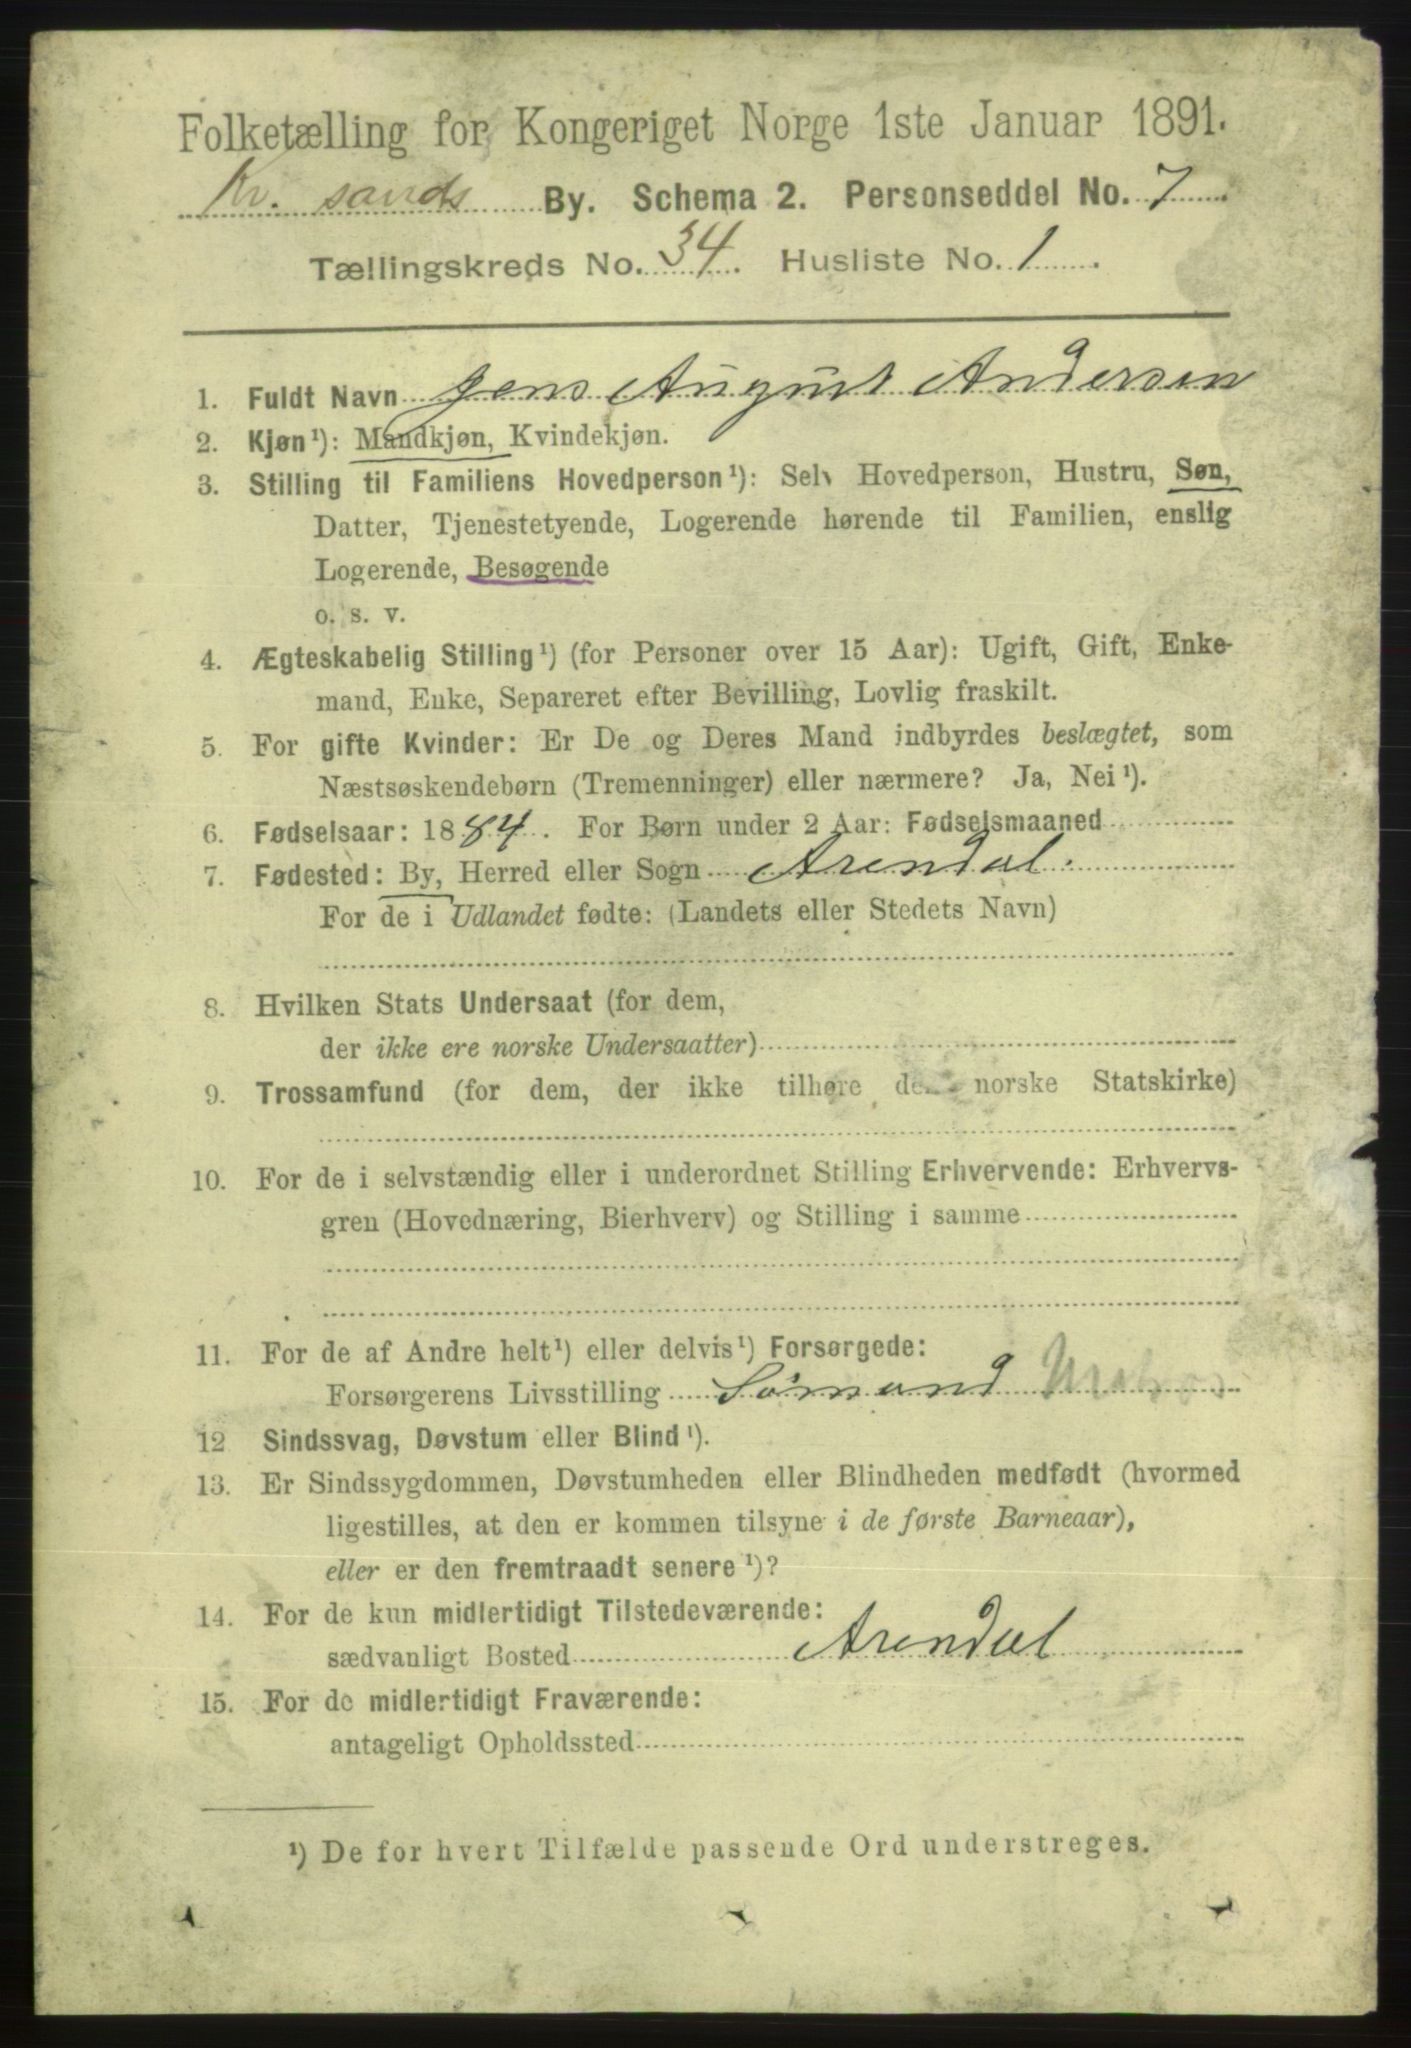 Folketælling for Kongeriget Norge 1ste Januar 1891.
Kr. sands By. Schema 2. Personseddel No. 7
Tællingskreds No. 34. Husliste No. 1.
1. Fuldt Navn Jens August Andersen
2. Kjøn¹): Mandkjøn, Kvindekjøn.
3. Stilling til Familiens Hovedperson¹): Selv Hovedperson, Hustru, Søn,
Datter, Tjenestetyende, Logerende hørende til Familien, enslig
Logerende, Besøgende
o. s. v.
4. Ægteskabelig Stilling¹) (for Personer over 15 Aar): Ugift, Gift, Enke-
mand, Enke, Separeret efter Bevilling, Lovlig fraskilt.
5. For gifte Kvinder: Er De og Deres Mand indbyrdes beslægtet, som
Næstsøskendebørn (Tremenninger) eller nærmere? Ja, Nei¹).
6. Fødselsaar: 1884. For Børn under 2 Aar: Fødselsmaaned
7. Fødested: By, Herred eller Sogn Arendal.
For de i Udlandet fødte: (Landets eller Stedets Navn)
8. Hvilken Stats Undersaat (for dem,
der ikke ere norske Undersaatter)
9. Trossamfund (for dem, der ikke tilhøre de norske Statskirke)
10. For de i selvstændig eller i underordnet Stilling Erhvervende: Erhvervs-
gren (Hovednæring, Bierhverv) og Stilling i samme
11. For de af Andre helt¹) eller delvis¹) Forsørgede:
Forsørgerens Livsstilling Sømand
12 Sindssvag, Døvstum eller Blind¹).
13. Er Sindssygdommen, Døvstumheden eller Blindheden medfødt (hvormed
ligestilles, at den er kommen tilsyne i de første Barneaar),
eller er den fremtraadt senere¹)?
14. For de kun midlertidigt Tilstedeværende:
sædvanligt Bosted Arendal
15. For de midlertidigt Fraværende:
antageligt Opholdssted
¹) De for hvert Tilfælde passende Ord understreges.